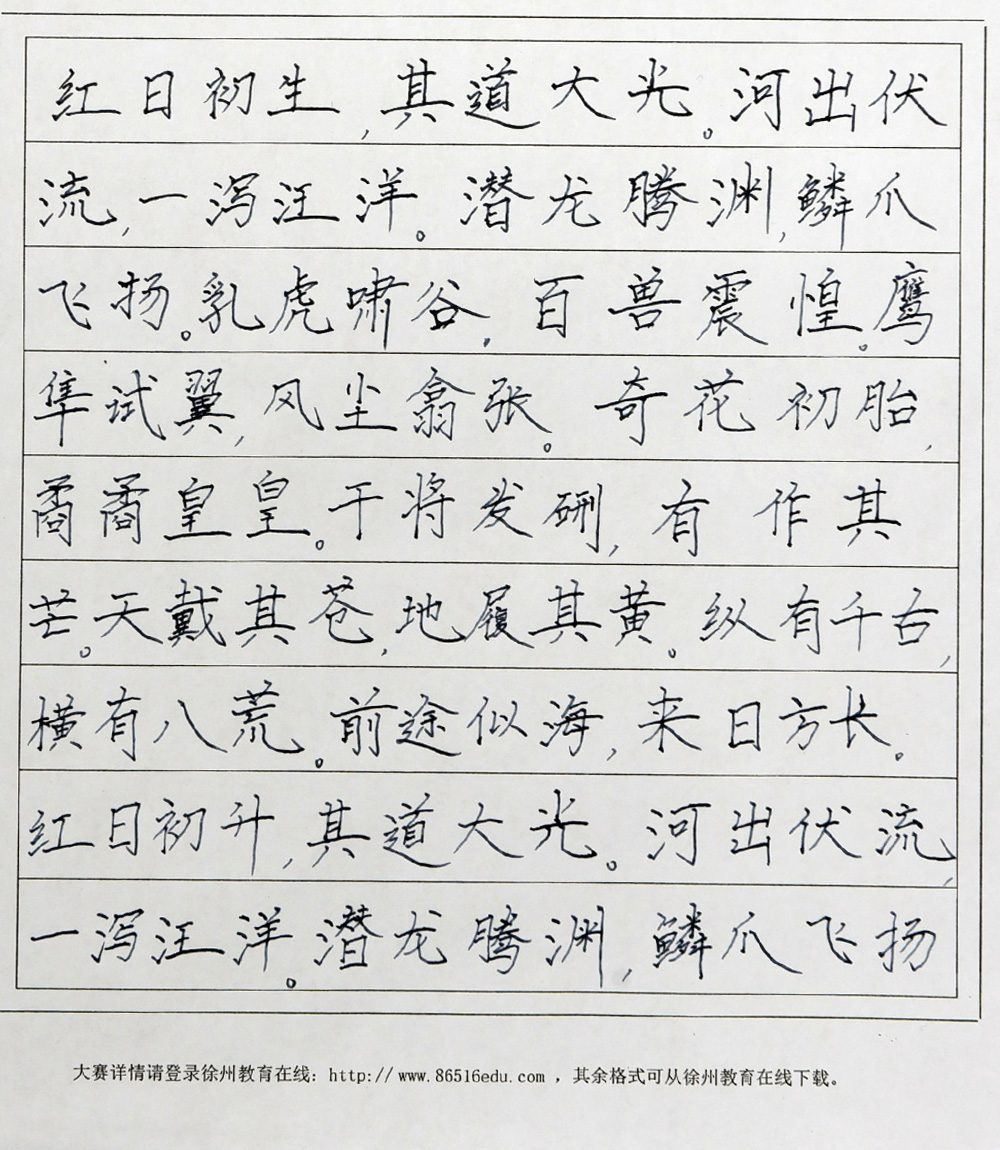 红日初生,其道大光。河出伏
流,一泻汪洋。潜龙腾渊,鳞爪
飞扬。乳虎啸谷,百兽震惶。鹰
隼试翼,风尘翕张。奇花初胎,
矞矞皇皇。干将发硎,有作其
芒。天戴其苍,地履其黄。纵有千古,
横有八荒。前途似海,来日方长。
红日初升,其道大光。河出伏流,
一泻汪洋。潜龙腾渊,鳞爪飞扬
大赛详情请登录徐州教育在线：http://www.86516edu.com，其余格式可从徐州教育在线下载。